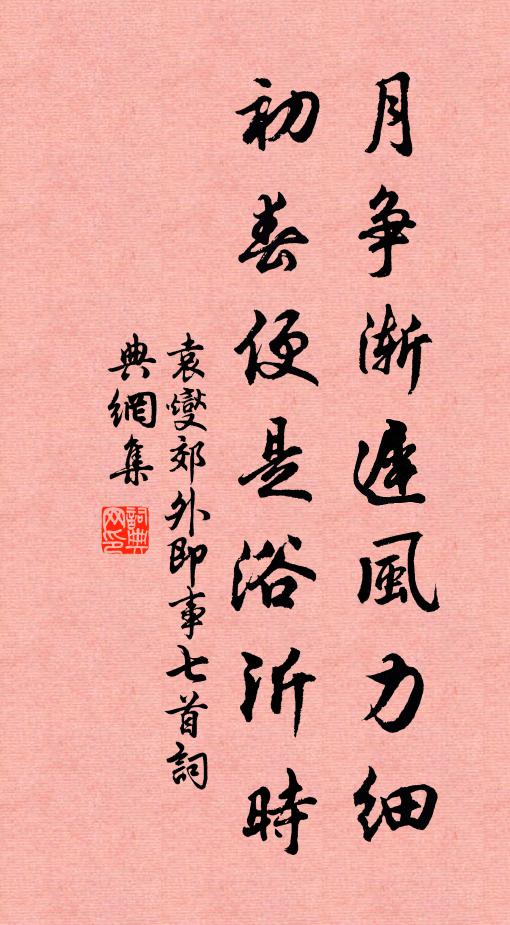 月争漸遲風力細
初春便是浴沂時
袁燮郊外即事七首詞
典網集
詞典
网印